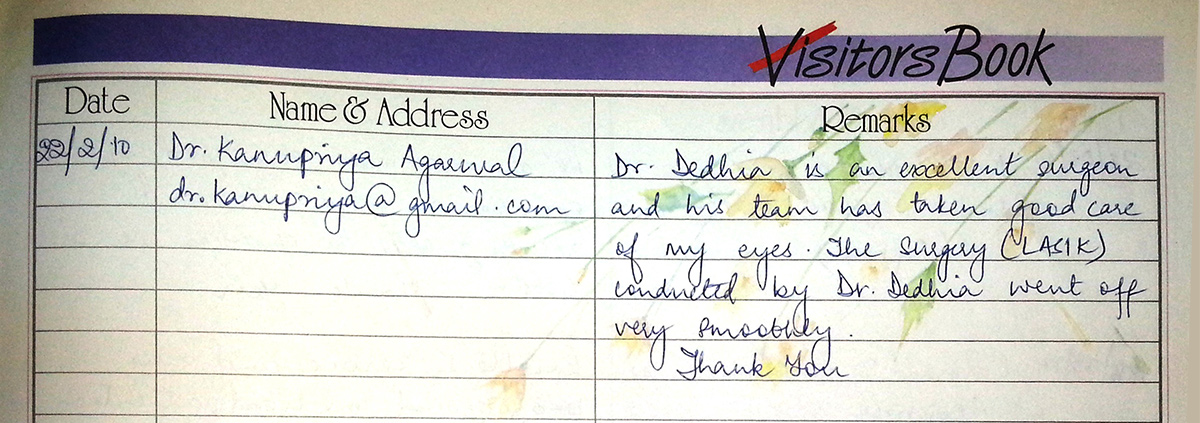 Visitors Book
Date Name & Address Remarks
22/2/10 Dr. Kanupriya Agarwal Dr. Dedhia is an excellent surgeon
dr.kanupriya@gmail.com and his team has taken good care
of my eyes. The surgery (LASIK)
conducted by Dr. Dedhia went off
very smoothly.
Thank You